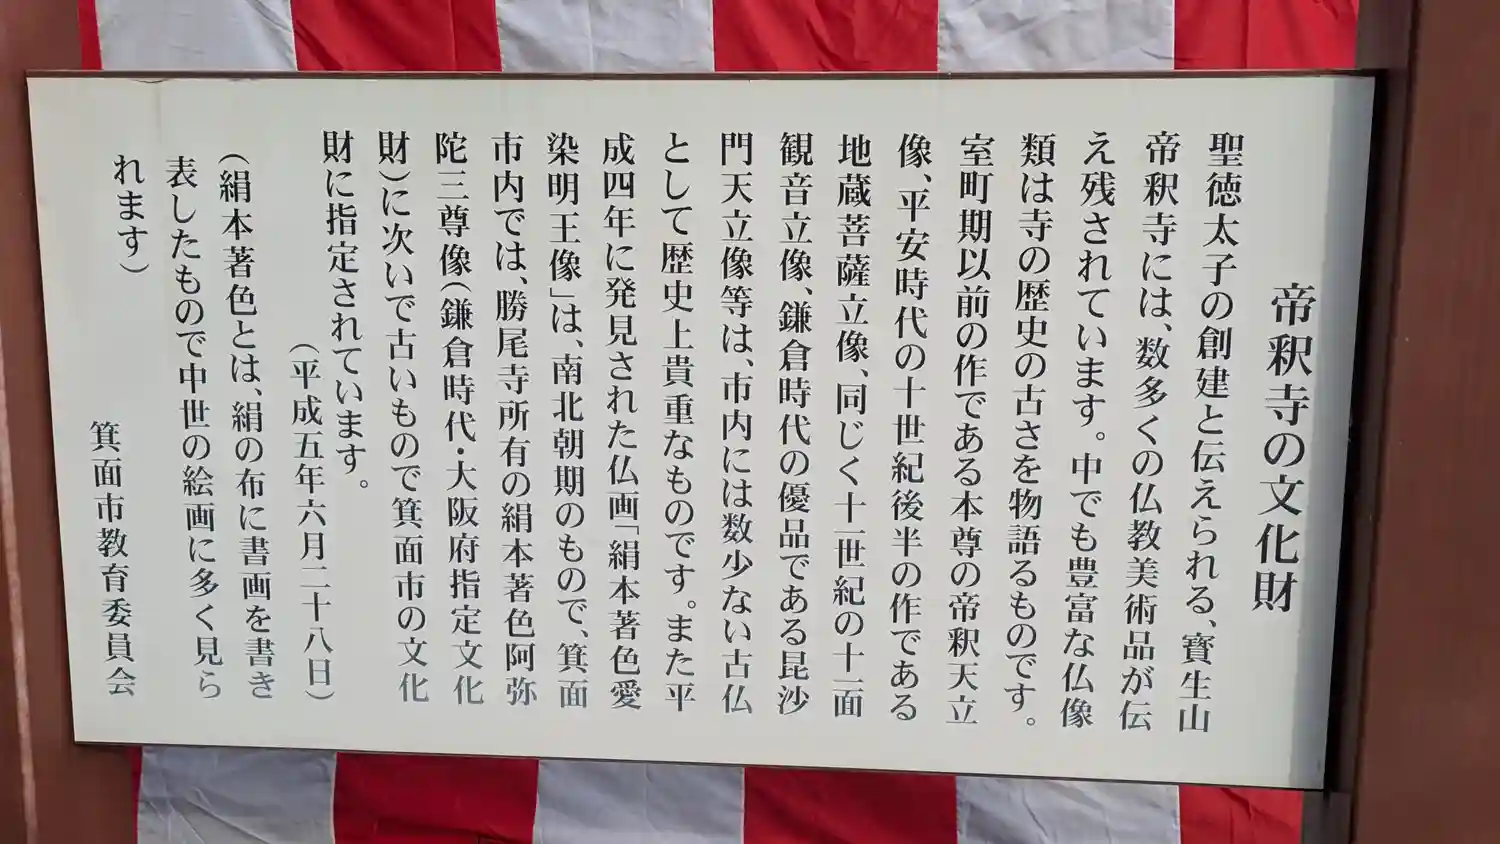 帝釈寺の文化財
聖徳太子の創建と伝えられる、寳生山
帝釈寺には、数多くの仏教美術品が伝
え残されています。中でも豊富な仏像
類は寺の歴史の古さを物語るものです。
室町期以前の作である本尊の帝釈天立
像、平安時代の十世紀後半の作である
地蔵菩薩立像、同じく十一世紀の十一面
観音立像、鎌倉時代の優品である毘沙
門天立像等は、市内には数少ない古仏
として歴史上貴重なものです。また平
成四年に発見された仏画「絹本著色愛
染明王像」は、南北朝期のもので、箕面
市内では、勝尾寺所有の絹本著色阿弥
陀三尊像(鎌倉時代・大阪府指定文化
財)に次いで古いもので箕面市の文化
財に指定されています。
(平成五年六月二十八日)
(絹本著色とは、絹の布に書画を書き
表したもので中世の絵画に多く見ら
れます)
箕面市教育委員会